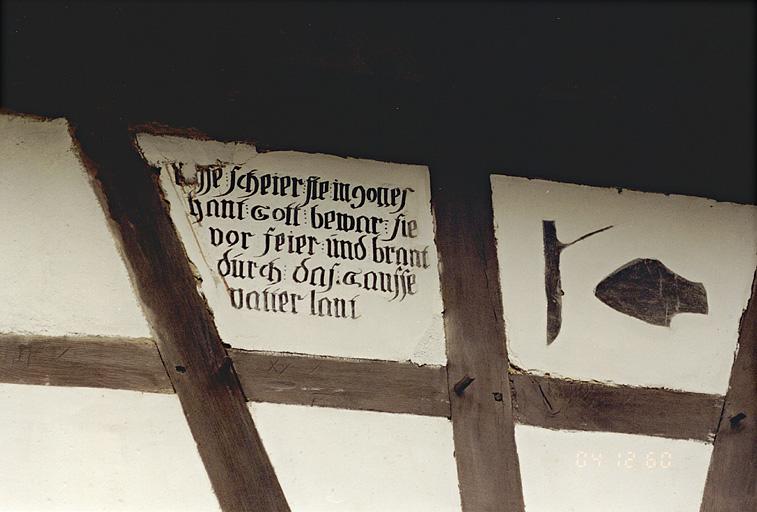 Diese scheier ste in gottes
hant Gott bewar sie
vor feier und brant
durch das Gansse
vatter lant
04 12 60